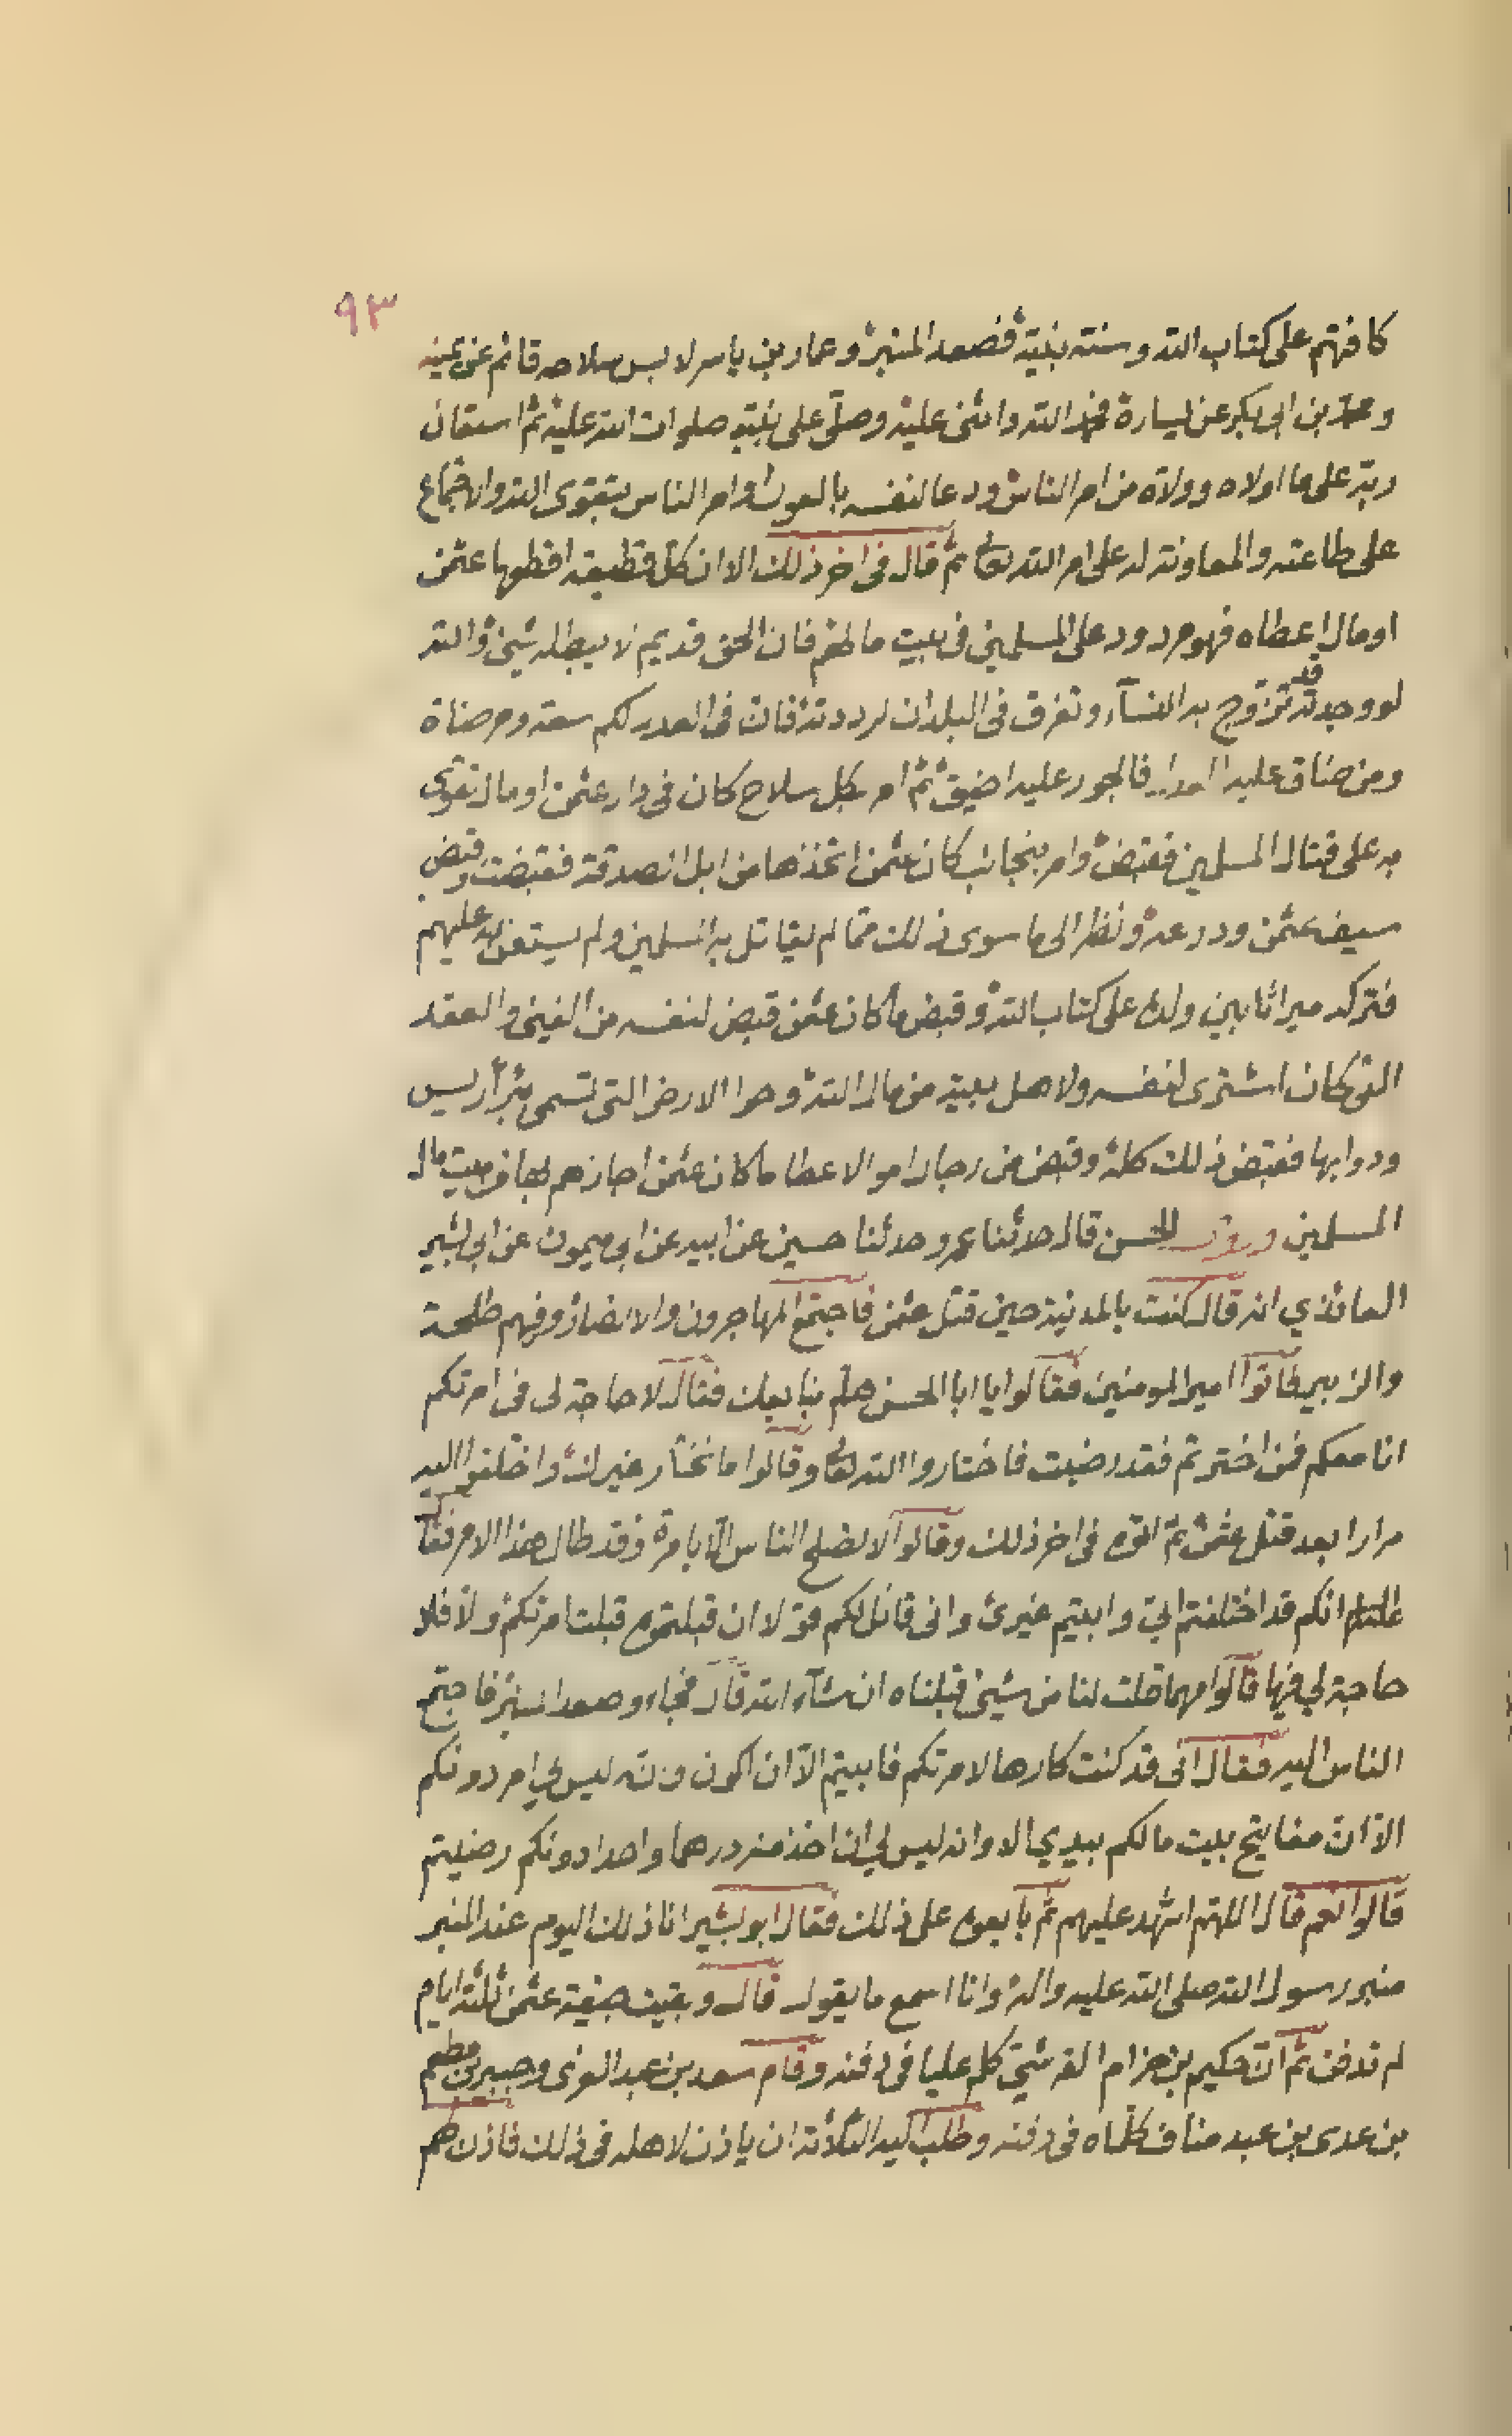 ٩٣
كافتهم على كتاب الله وسنته نبيّه فصعد المنبر وعمار بن ياسر لابس سلاحه قائم عن يمينه
ومحمد بن ابى بكر عن يساره فحمد الله واثنى عليه وصلّى على نبيّه صلوات الله عليه ثم استعان
ربّه على ما اولاه وولاه من امر الناس ودعا لنفسه بالعون وامر الناس بتقوى الله والاجتماع
على طاعته والمعاونة له على امر الله تعالى ثم قال فى اخر ذلك الا ان كل قطيعة اقطعها عثمن
او مال اعطاه فهو مردود على المسلمين فى بيت مالهم فان الحق قديم لا يبطله شيئ والله
لو وجدته قد تزوّج به النسآء وتفرق فى البلدان لرددته فان فى العدل لكم سعة ومرضاة
ومن ضاق عليه العدل فالجور عليه اضيق ثم امر بكل سلاح كان فى دار عثمن او مال تقوّى
به على قتال المسلمين فقبض وامر بنجائب كان عثمن اتخذها من ابل الصدقة فقبضت وقبض
سيف عثمن ودرعه ونظر الى ما سوى ذلك ممّا لم يقاتل به المسلمين ولم يستعن به عليهم
فتركه ميراثا بين ولده على كتاب الله وقبض ما كان عثمن قبض لنفسه من الفيئ والعقد
التى كان اشترى لنفسه ولاهل بيته من مال الله وهو الارض التى تسمى بئر أريس
ودوابها فقبض ذلك كله وقبض من رجال اموالا عظاما كان عثمن اجازهم بها من بيت مال
المسلمين وروى الحسن قال حدثنا عمرو حدثنا حسين عن ابيه عن ابى ميمون عن ابى بشير
العائذي انه قال كنت بالمدينة حين قتل عثمن فاجتمع المهاجرون والانصار وفيهم طلحة
والزبير فاتوا امير المومنين فقالوا يا ابا الحسن هلم نبايعك فقال لا حاجة لى فى امرتكم
انا معكم فمن اخترتم فقد رضيت فاختاروا الله تعالى وقالوا ما نختار غيرك واختلفوا اليه
مرارا بعد قتل عثمن ثم اتوه فى اخر ذلك وقالوا لا يصلح الناس الّا بامرة وقد طال هذا الامر فقال
انكم قد اختلفتم اليّ وابيتم غيرى وانى قائل لكم قولا ان قبلتموه قبلت امرتكم ولّا فلا
حاجة لي فيها قالوا مهما قلت لنا من شيئ قبلناه ان شآء الله قال فجاء وصعد المنبر فاجتمع
الناس اليه فقال انى قد كنت كارها لامرتكم فابيتم الّا ان اكون وانه ليس لي امر دونكم
الّا ان مفاتيح بيت مالكم بيدي الا وانه ليس لي ان اخذ منه درهما واحدا دونكم رضيتم
قالوا نعم قال اللهم اشهد عليهم ثم بايعوه على ذلك فقال ابو بشير انا ذلك اليوم عند المنبر
منبر رسول الله صلى الله عليه واله وانا اسمع ما يقول قال وبقيت جيفة عثمن ثلثة ايام
لم تدفن ثم انّ حكيم بن حزام القرشيّ كلم عليا فى دفنه وقام سعد بن عبد العزى وجبير بن مطعم
بن عدى بن عبد مناف كلّماه فى دفنه وطلب اليه الثلاثة ان ياذن لاهله فى ذلك فاذن لهم